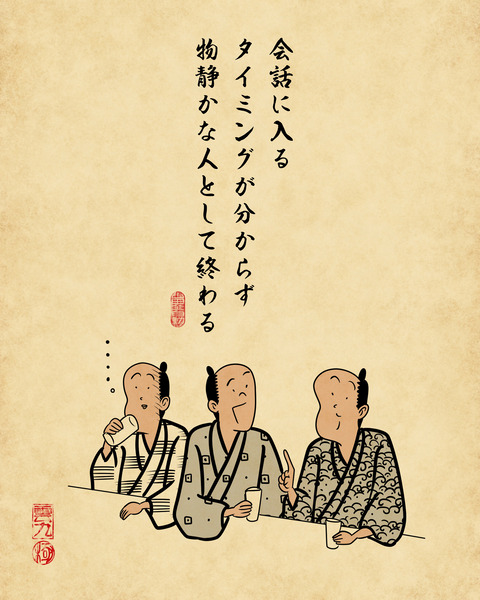 会話に入る
タイミングが分からず
物静かな人として終わる